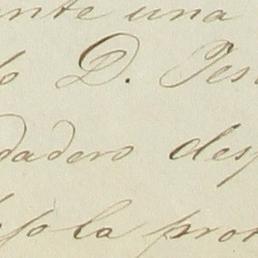 nte una
o D. Jes
dadero des
sola pro